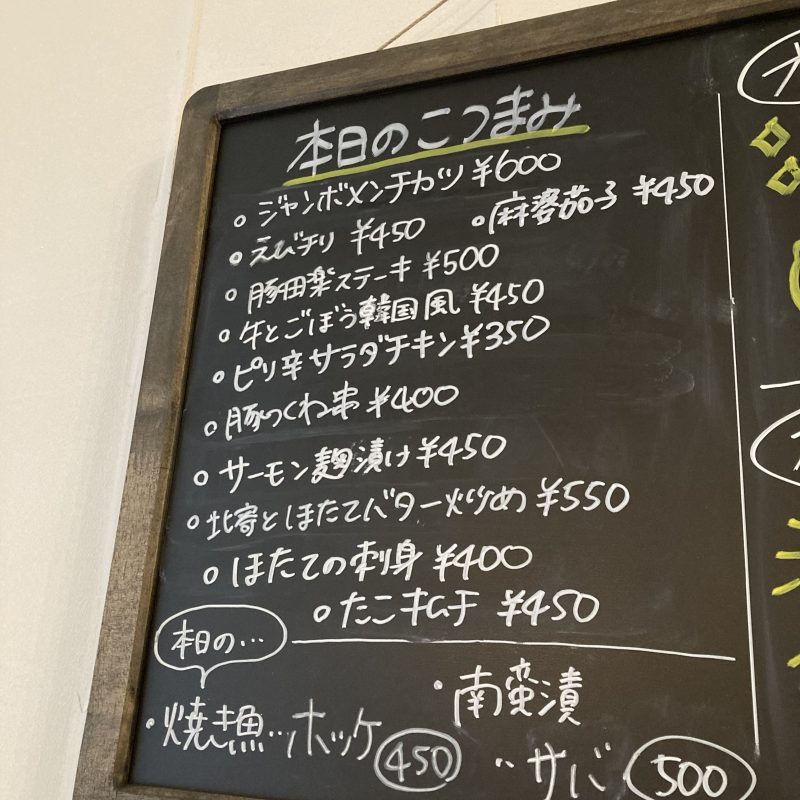 本日のこつまみ
○ ジャンボメンチカツ ¥600
○ えびチリ ¥450 ○麻婆茄子 ¥450
○ 豚田楽ステーキ ¥500
○ 牛とごぼう韓国風 ¥450
○ ピリ辛サラダチキン ¥350
○ 豚つくね串 ¥400
○ サーモン麹漬け ¥450
○ 北寄とほたてバター炒め ¥550
○ ほたての刺身 ¥400
○ たこキムチ ¥450
本日の…
・焼き魚…ホッケ 450
・南蛮漬
…サバ 500